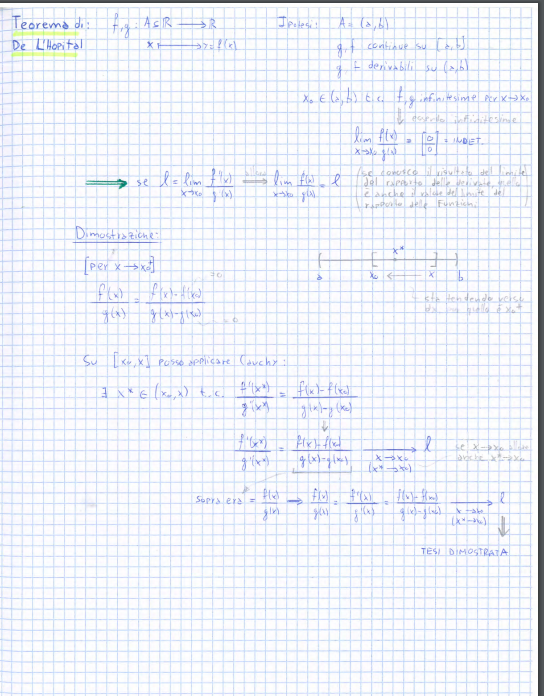 Teorema di: f, g : A ⊆ ℝ → ℝ Ipotesi: A = (a, b)
De L'Hopital x ↦ y = f(x) g, f continue su [a, b]
g derivabili su (a, b)
x₀ ∈ (a, b) t.c. f, g infinitesime per x → x₀
essendo infinitesime
lim x→x₀ f(x)/g(x) = [0/0] = INDET.
⟹ se l = lim x→x₀ f'(x)/g'(x) allora ⟹ lim x→x₀ f(x)/g(x) = l
(se conosco il risultato del limite
del rapporto delle derivate, quello
è anche il valore del limite del
rapporto delle funzioni)
Dimostrazione:
[per x → x₀⁺]
x*
a x₀ ← x b
f(x)/g(x) = f(x) - f(x₀) / g(x) - g(x₀) =0 =0
sta tendendo verso
dx, quello è x₀⁺
Su [x₀, x] posso applicare Cauchy:
∃ x* ∈ (x₀, x) t.c. f'(x*)/g'(x*) = f(x) - f(x₀) / g(x) - g(x₀)
f'(x*)/g'(x*) = f(x) - f(x₀) / g(x) - g(x₀) → x→x₀ (x*→x₀) l se x → x₀ allora
anche x* → x₀
sopra era = f(x)/g(x) ⟹ f(x)/g(x) = f'(x)/g'(x) = f(x) - f(x₀) / g(x) - g(x₀) → x→x₀ (x*→x₀) l
TESI DIMOSTRATA